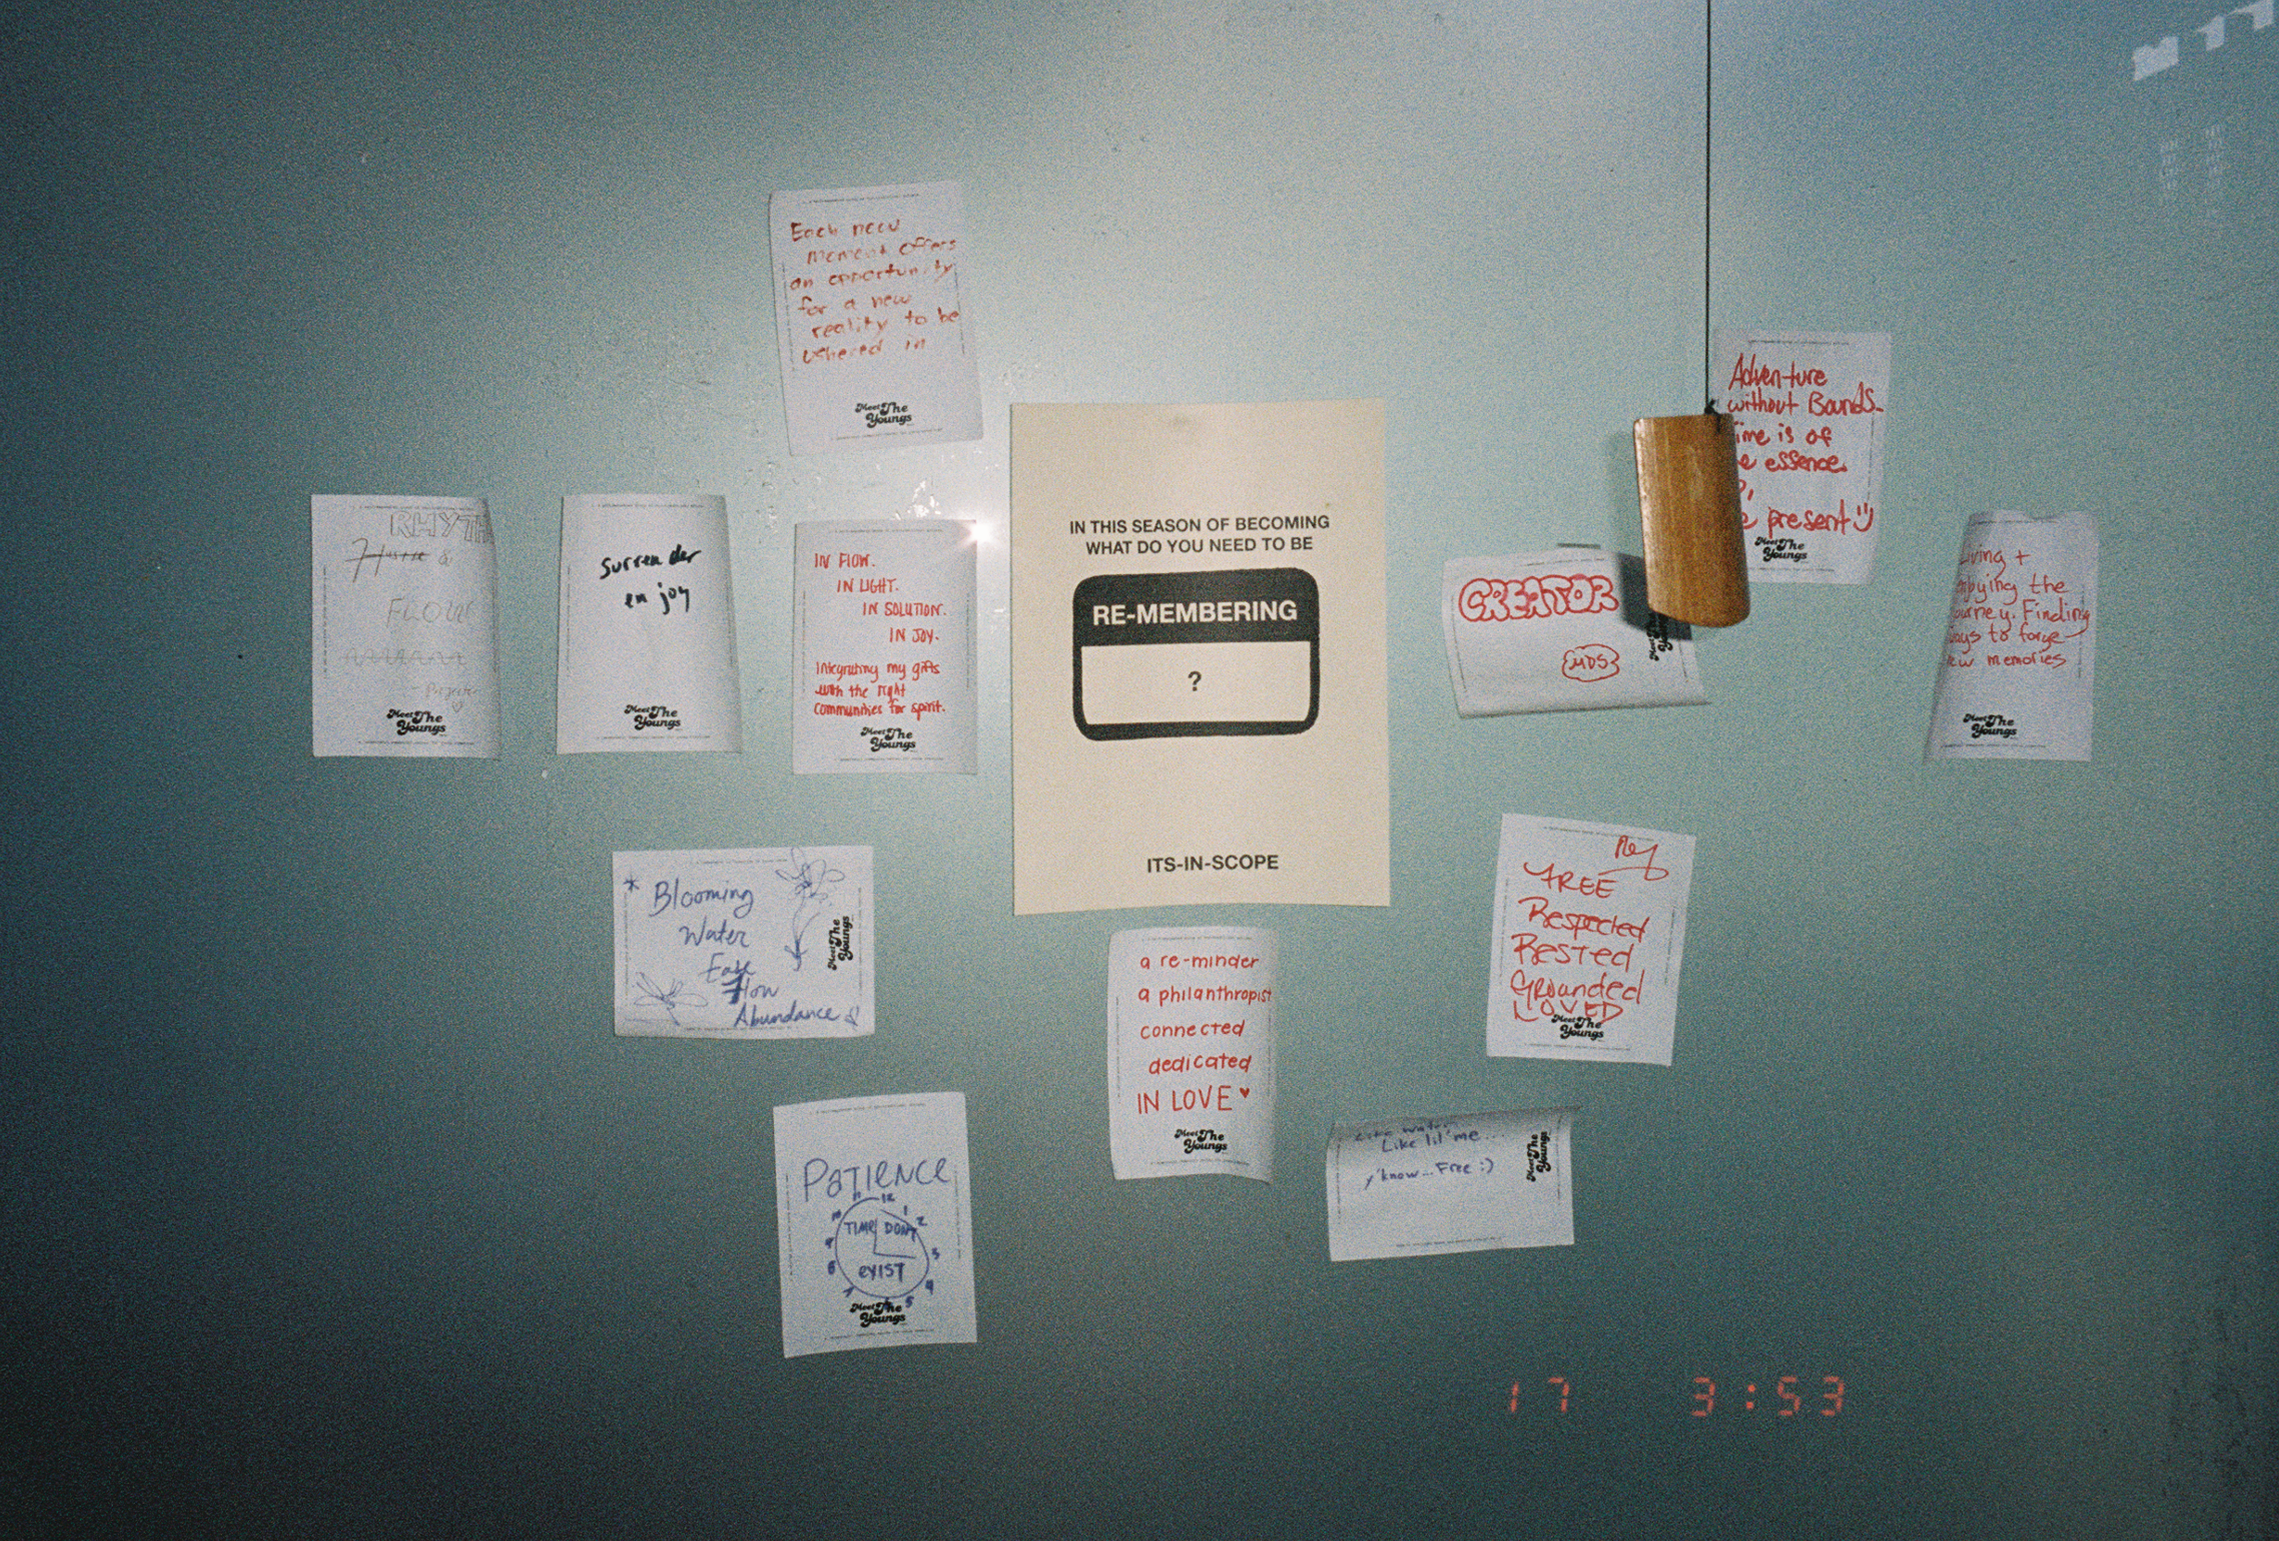 Each new
moment offers
an opportunity
for a new
reality to be
ushered in
Meet The
Youngs
RHYTH
Hustle &
FLOW
Meet The
Youngs
Surrender
enjoy
Meet The
Youngs
IN FLOW.
IN LIGHT.
IN SOLUTION.
IN JOY.
Integrating my gifts
with the right
communities for spirit.
Meet The
Youngs
IN THIS SEASON OF BECOMING
WHAT DO YOU NEED TO BE
RE-MEMBERING
?
ITS-IN-SCOPE
CREATOR
MDS
Adventure
without Bounds.
ime is of
e essence.
e present
Meet The
Youngs
iving +
the
urney. Finding
ays to forge
ew memories
Meet The
Youngs
* Blooming
Water
Ease
Flow
Abundance
Meet The
Youngs
a re-minder
a philanthropist
connected
dedicated
IN LOVE ♥
Meet The
Youngs
FREE
Respected
Rested
Grounded
LOVED
Meet The
Youngs
PATIENCE
11 12 1
10 2
TIME DON'T
9 3
EXIST
8 4
7 6 5
Meet The
Youngs
Like water
Like lil' me...
y'know... Free :)
Meet The
Youngs
17 3:53